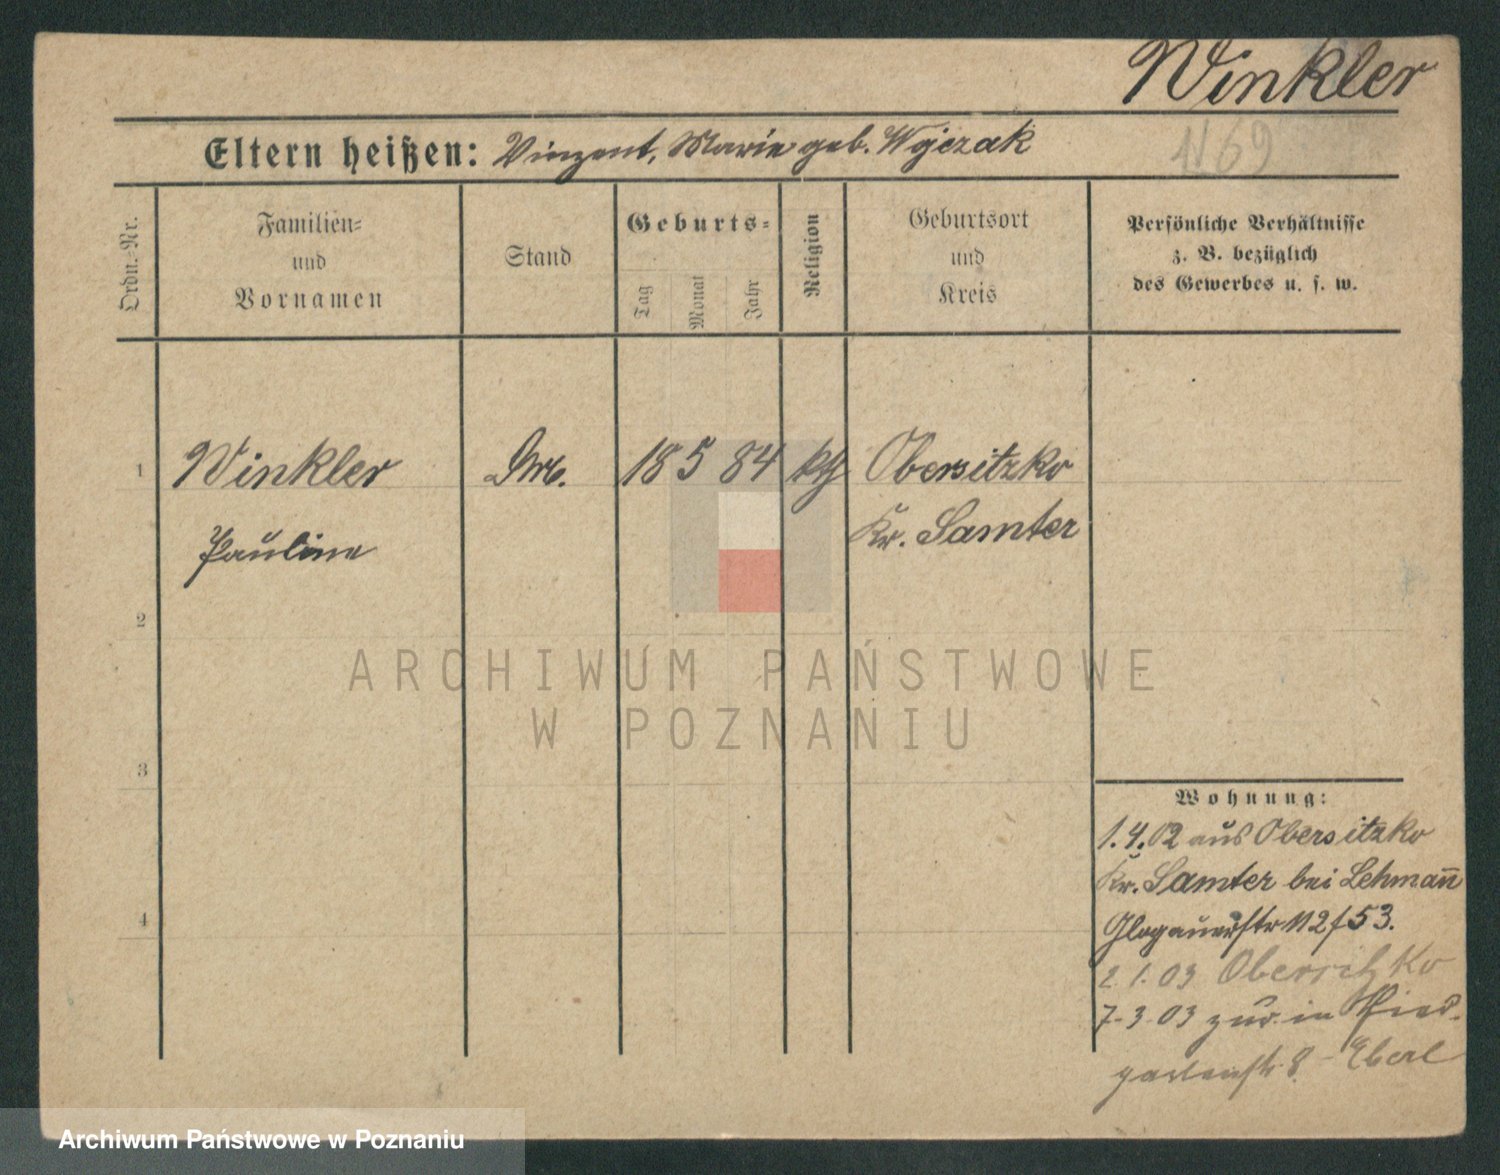 Winkler
1169
Eltern heißen: Vinzent, Marie geb. Wyczak
Ordn.-Nr.
Familien-
und
Vornamen
Stand
Geburts-
Tag
Monat
Jahr
Religion
Geburtsort
und
Kreis
Persönliche Verhältnisse
z. B. bezüglich
des Gewerbes u. s. w.
1 Winkler 18 5 84 kth Obersitzko
Pauline Kr. Samter
2
3
4
ARCHIWUM PAŃSTWOWE
W POZNANIU
Wohnung:
1.4.02 aus Obersitzko
Kr. Samter bei Lehmann
Glogauerstr 112/53.
2.1.03 Obersitzko
7.3.03 zur. in Thier-
gartenstr 8. Eberl
Archiwum Państwowe w Poznaniu